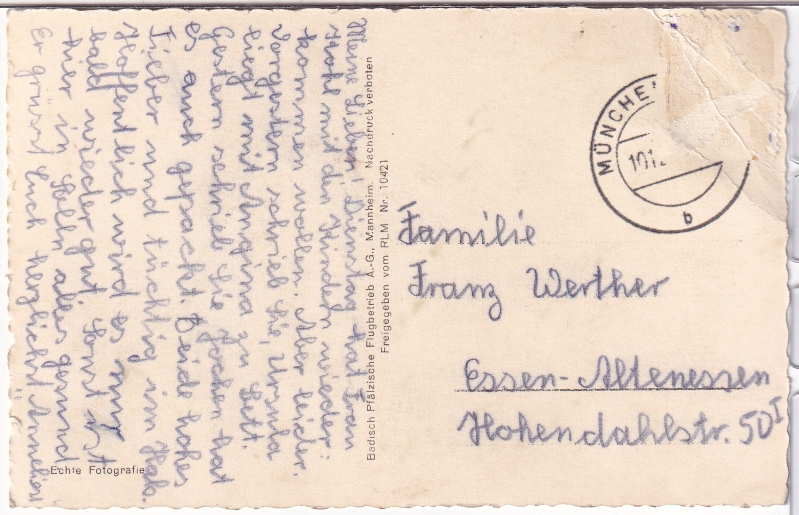 Meine Lieben! Dienstag hat Frau
Stohl mit den Kindern wieder
kommen wollen. Aber leider.
Vorgestern schrieb sie, Ursula
liegt mit Angina zu Bett.
Gestern schrieb sie Jochen hat
es auch gepackt Beide hohes
Fieber und tüchtig im Hals.
Hoffentlich wird es nun
bald wieder gut. Sonst ist
hier in alles gesund
Er grüsst Euch herzlichst Annelies
Echte Fotografie
Badisch Pfälzische Flugbetrieb A.-G., Mannheim. Nachdruck verboten
Freigegeben vom RLM Nr. 10421
MÜNCHE
10.1.
b
Familie
Franz Werther
Essen-Altenessen
Hohendahlstr. 50 I